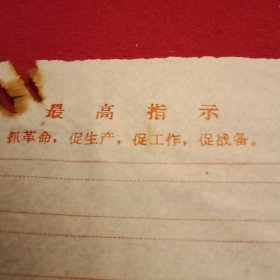 最高指示
抓革命，促生产，促工作，促战备。